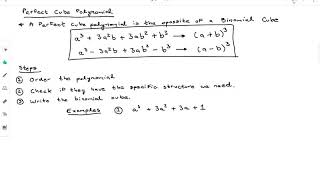 Perfect Cube Polynomial
* A Perfect Cube polynomial is the opposite of a Binomial Cube
a³ + 3a²b + 3ab² + b³ → (a+b)³
a³ - 3a²b + 3ab² - b³ → (a-b)³
Steps
① Order the polynomial
② Check if they have the specific structure we need.
③ Write the binomial cube.
Examples ① a³ + 3a² + 3a + 1